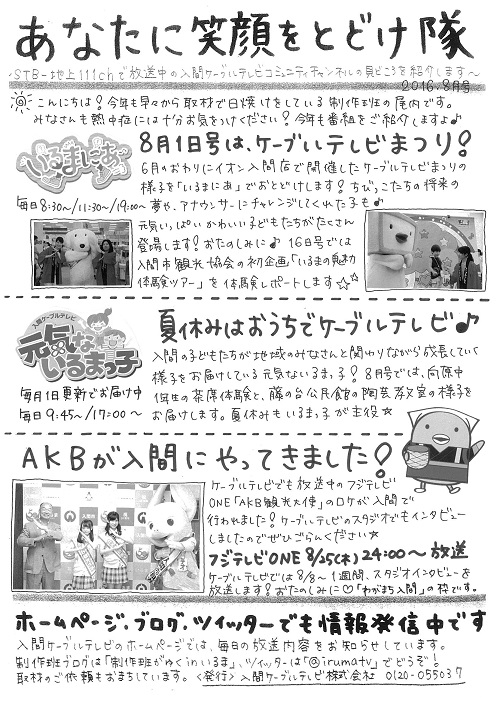 あなたに笑顔をとどけ隊
~STB-地上111chで放送中の入間ケーブルテレビコミュニティチャンネルの見どころを紹介します~
2016.8月号
こんにちは!今年も早々から取材で日焼けをしている制作班の尾内です。
みなさんも熱中症には十分お気をつけください!今年も番組をご紹介しますよ♪
いるまにあ
毎日8:30~/11:30~/19:00~
8月1日号は、ケーブルテレビまつり!
6月のおわりにイオン入間店で開催したケーブルテレビまつりの
様子を「いるまにあ」でおとどけします!ちびっこたちの将来の
夢や、アナウンサーにチャレンジしてくれた子も♪
元気いっぱいかわいい子どもたちがたくさん
登場します!おたのしみに♪16日号では
入間市観光協会の初企画「いるまの魅力
体験ツアー」を体験レポートします☆☆
入間ケーブルテレビ
元気ないるまっ子
毎月1日更新でお届け中
毎日9:45~/17:00~
夏休みはおうちでケーブルテレビ♪
入間の子どもたちが地域のみなさんと関わりながら成長していく
様子をお届けしている元気ないるまっ子!8月号では、向原中
1年生の茶席体験と、藤の台公民館の陶芸教室の様子を
お届けします。夏休みもいるまっ子が主役☆
AKBが入間にやってきました!
ケーブルテレビでも放送中のフジテレビ
ONE「AKB観光大使」のロケが入間で
行われました!ケーブルテレビのスタジオでもインタビュー
しましたのでぜひごらんください☆
フジテレビONE 8/25(木)24:00~放送
ケーブルテレビでは8/8~1週間、スタジオインタビューを
放送します!おたのしみに♡「わがまち入間」の枠です。
ホームページ・ブログ・ツイッターでも情報発信中です
入間ケーブルテレビのホームページでは、毎日の放送内容をお知らせしています。
制作班ブログは「制作班がゆくinいるま」、ツイッターは「@irumatv」でどうぞ!
取材のご依頼もおまちしています。<発行>入間ケーブルテレビ株式会社 0120-055037